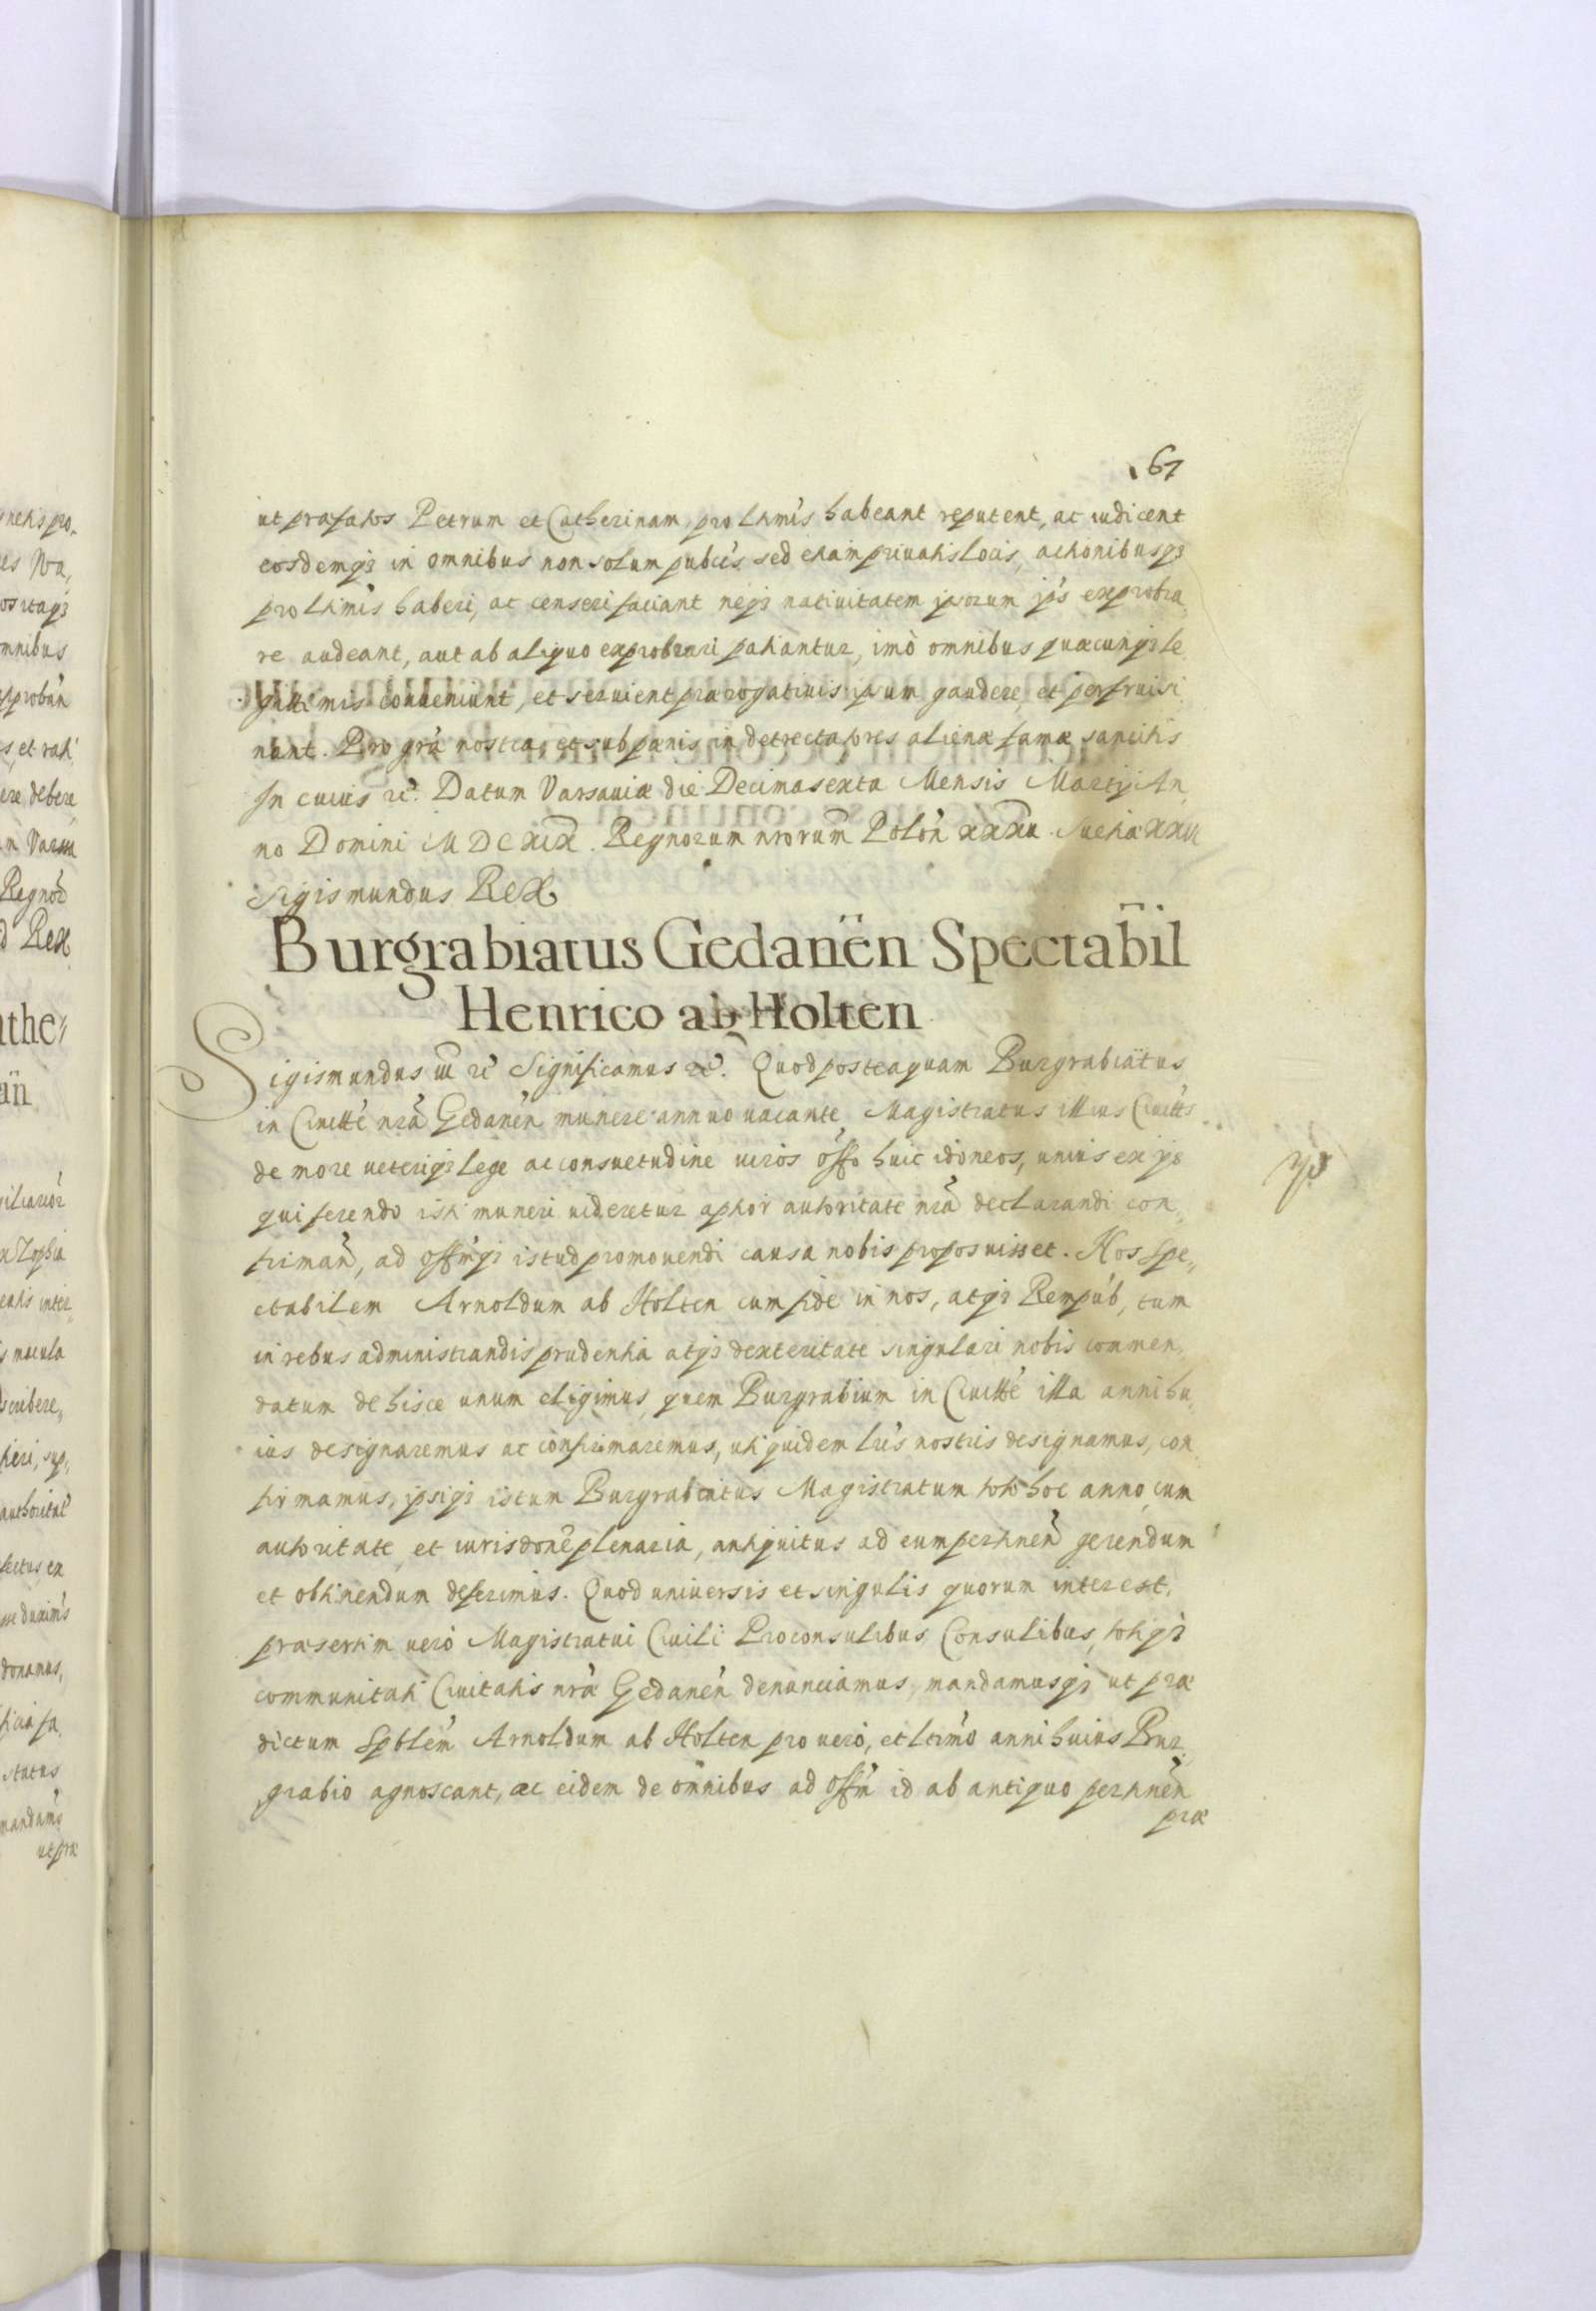 67
ut præfatos Petrum et Catherinam, pro ltimis habeant reputent, ac iudicent
eosdemq3 in omnibus non solum pubcis sed etiam priuatis locis, actionibusq3
pro ltimis haberi, ac censeri faciant neq3 natiuitatem ipsorum ijs exprobra,
re audeant, aut ab aliquo exprobrari patiantur, imò omnibus quæcunq3 le,
gittimis conueniunt, et seruient prærogatiuis ipsum gaudere, et perfrui si
nant. Pro gra nostra, et sub pænis in detrectatores alienæ famæ sancitis
In cuius rc. Datum Varsauiæ die Decimasexta Mensis Martij An,
no Domini MDCXIX. Regnorum nrorum Polon XXXII Suetiæ XXVI
Sigismundus Rex
Burgrabiatus Gedanen Spectabil
Henrico ab Holten
Sigismundus III rc Significamus rc. Quod posteaquam Burgrabiatus
in Ciuitte nra Gedanen munere annuo uacante, Magistratus illius Ciuitts
de more ueteriq3 lege ac consuetudine uiros offo huic idoneos, unius ex ijs
qui ferendo isti muneri uideretur aptior autoritate nra declarandi con,
firman, ad offmq3 istud promouendi causa nobis proposuisset. Nos Spe,,
ctabilem Arnoldum ab Holten cum fide in nos, atq3 Rempub, tum
in rebus administrandis prudentia atq3 dexteritate singulari nobis commen,
datum de hisce unum eligimus, quem Burgrabium in Ciuitte illa anni hu,
ius designaremus ac confirmaremus, uti quidem lris nostris designamus, con,
firmamus, ipsiq3 istum Burgrabiatus Magistratum toto hoc anno, cum
autoritate, et iurisdone plenaria, antiquitus ad eum pertinen gerendum
et obtinendum deferimus. Quod uniuersis et singulis quorum interest,
præsertim uero Magistratui Ciuili Proconsulibus, Consulibus, totiq3
communitati Ciuitatis nræ Gedanen denunciamus, mandamusq3 ut præ
dictum Spblem Arnoldum ab Holten pro uero, et ltimo anni huius Bur,
grabio agnoscant, ac eidem de omnibus ad offm id ab antiquo pertinen
præ